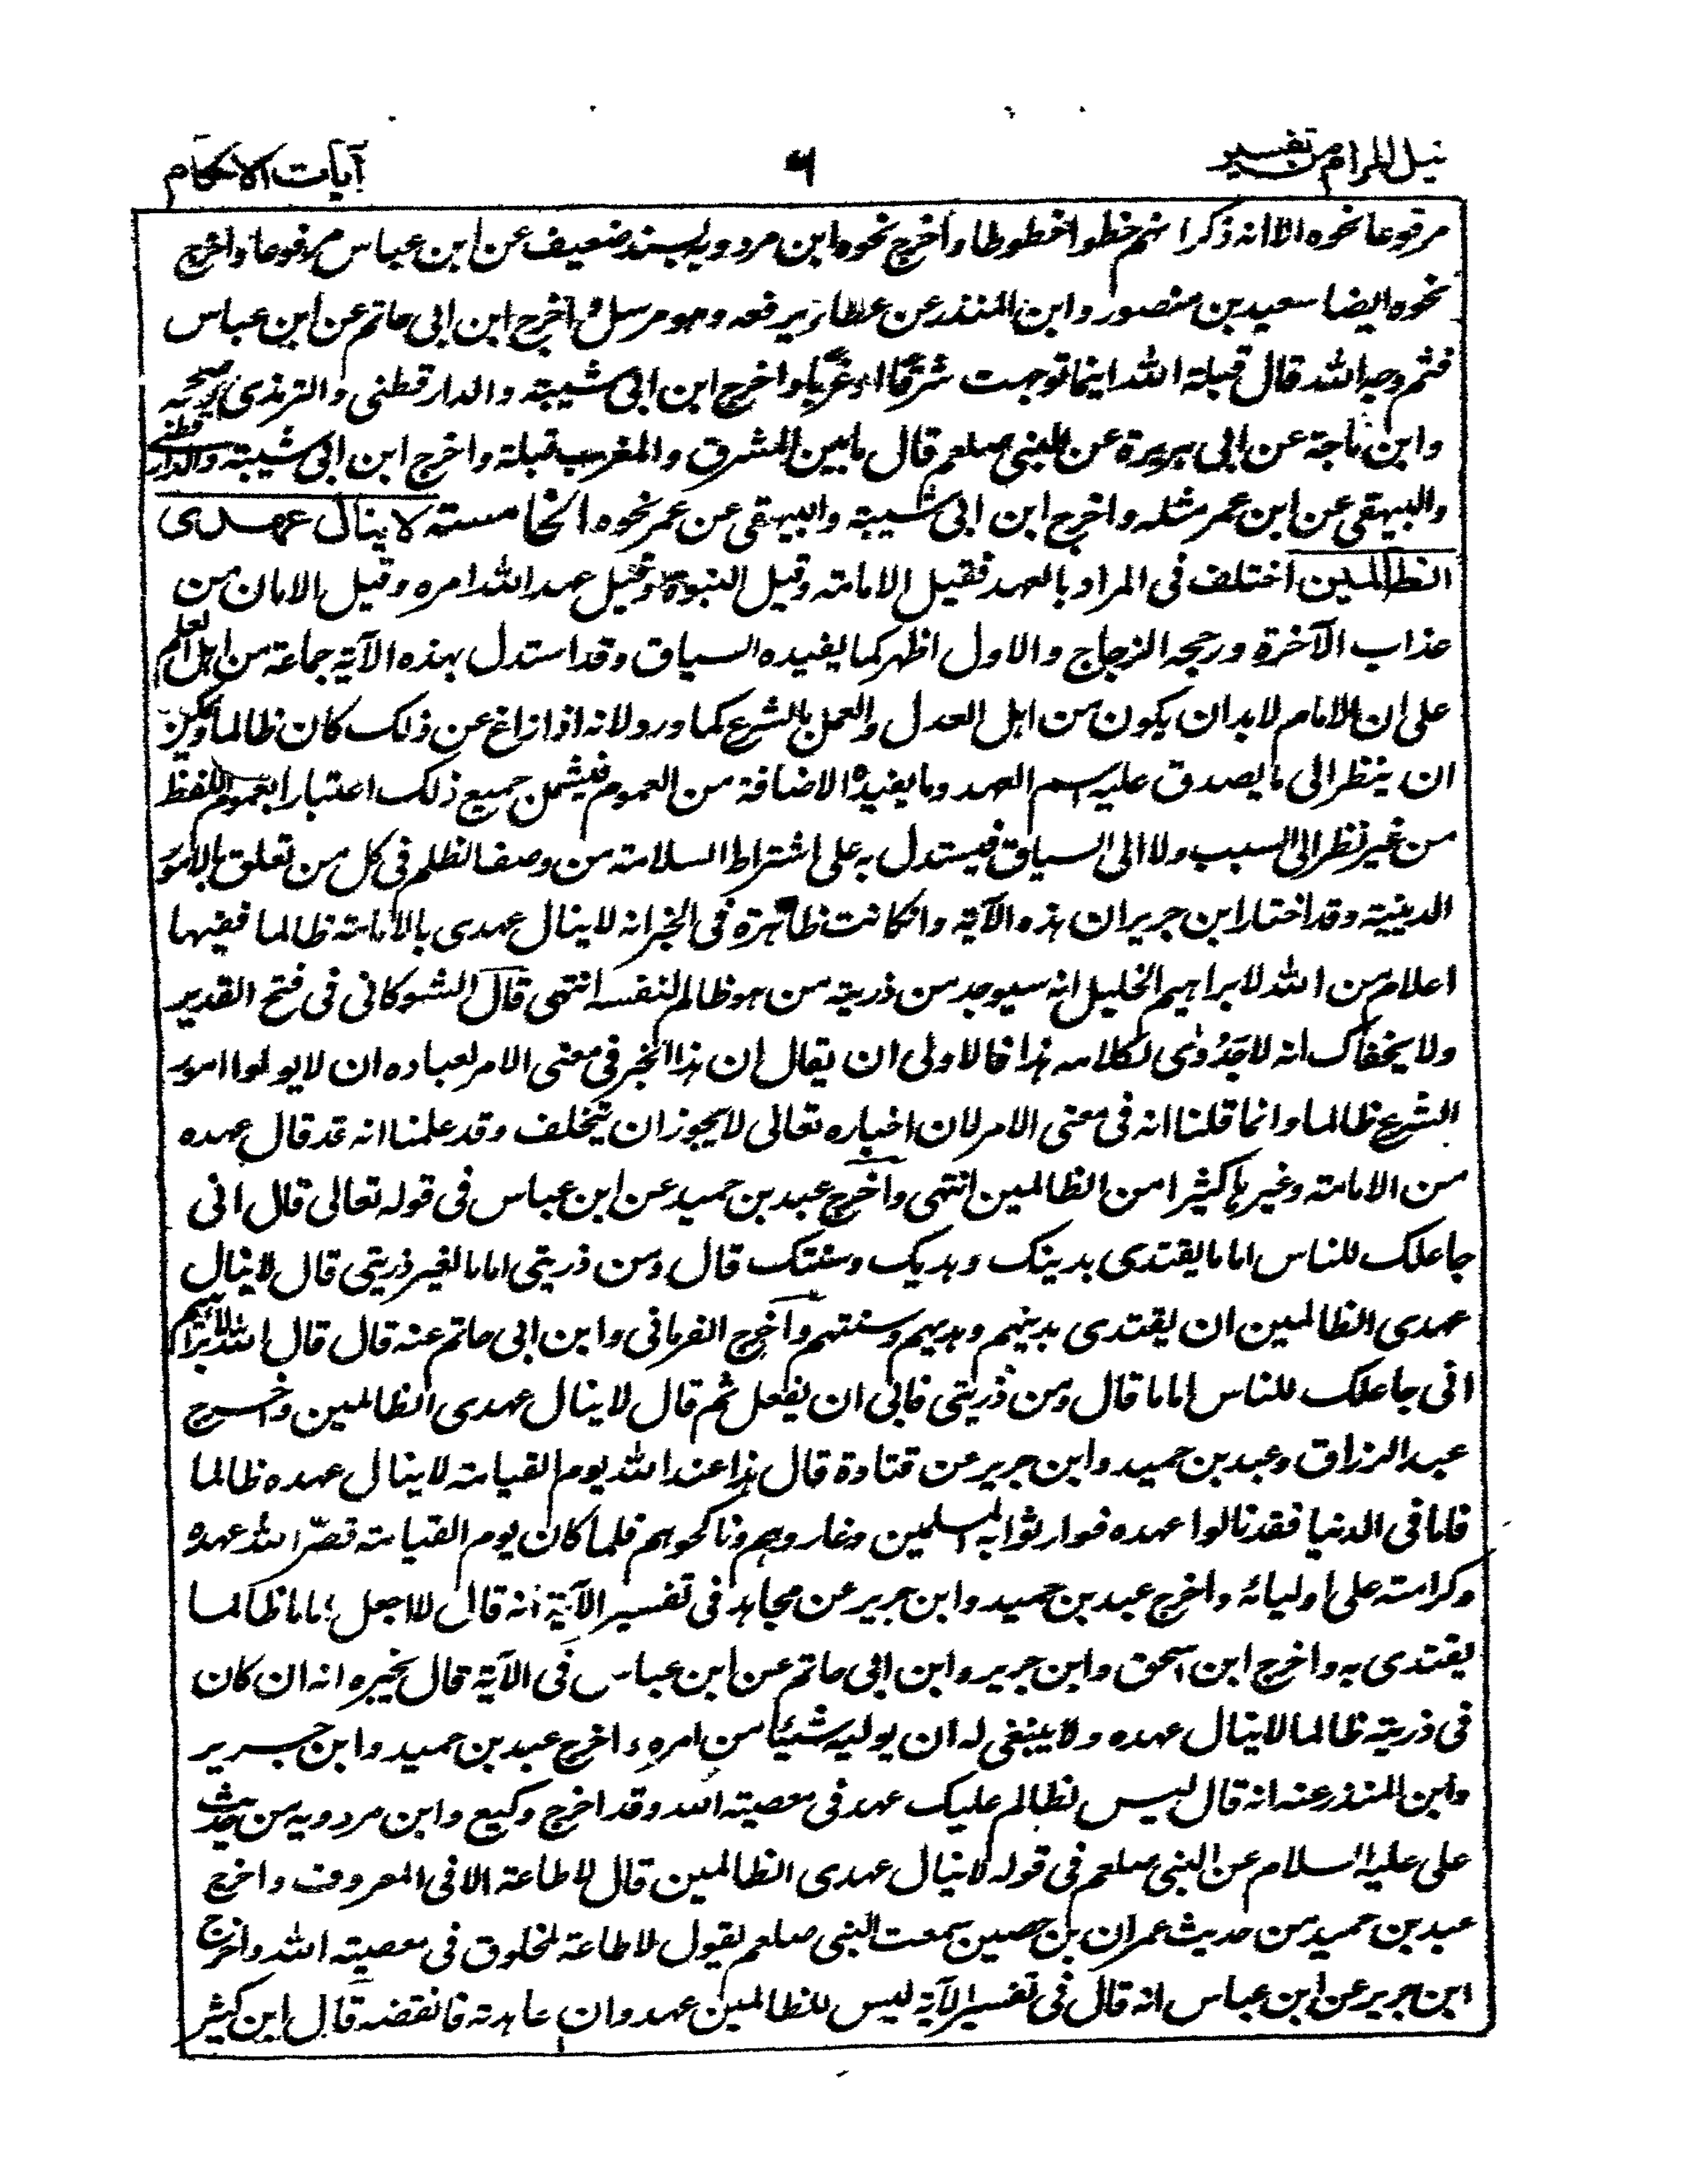 نيل المرام من تفسير
٦
آيات الاحكام
مرفوعا نحوه الا انه ذكر انهم خطوا خطوطا واخرج نحوه ابن مردويه بسند ضعيف عن ابن عباس مرفوعا واخرج
نحوه ايضا سعيد بن منصور وابن المنذر عن عطاء يرفعه وهو مرسل واخرج ابن ابى حاتم عن ابن عباس
فثم وجه الله قال قبلة الله اينما توجهت شرقا او غربا واخرج ابن ابى شيبة والدارقطنى والترمذى وصححه
وابن ماجة عن ابى هريرة عن النبى صلعم قال ما بين المشرق والمغرب قبلة واخرج ابن ابى شيبة والدارقطنى
والبيهقى عن ابن عمر مثله واخرج ابن ابى شيبة والبيهقى عن عمر نحوه الخامسة لا ينال عهدى
الظالمين اختلف فى المراد بالعهد فقيل الامامة وقيل النبوة وقيل عهد الله امره وقيل الامان من
عذاب الآخرة ورجحه الزجاج والاول اظهر كما يفيده السياق وقد استدل بهذه الآية جماعة من اهل العلم
على ان الامام لا بد ان يكون من اهل العدل والعمل بالشرع كما ورد لانه اذا زاغ عن ذلك كان ظالما ويمكن
ان ينظر الى ما يصدق عليه اسم العهد وما يفيده الاضافة من العموم فيشمل جميع ذلك اعتبارا بعموم اللفظ
من غير نظر الى السبب ولا الى السياق فيستدل به على اشتراط السلامة من وصف الظلم فى كل من تعلق بالامور
الدينية وقد اختار ابن جرير ان هذه الآية وانكانت ظاهرة فى الخبر انه لا ينال عهدى بالامامة ظالما ففيها
اعلام من الله لابراهيم الخليل انه سيوجد من ذريته من هو ظالم لنفسه انتهى قال الشوكانى فى فتح القدير
ولا يخفاك انه لا جدوى لكلامه هذا فالاولى ان يقال ان هذا الخبر فى معنى الامر لعباده ان لا يولوا امور
الشرع ظالما وانما قلنا انه فى معنى الامر لان اخباره تعالى لا يجوز ان يتخلف وقد علمنا انه قد قال عهده
من الامامة وغيرها كثيرا من الظالمين انتهى واخرج عبد بن حميد عن ابن عباس فى قوله تعالى قال انى
جاعلك للناس اماما يقتدى بدينك وهديك وسنتك قال ومن ذريتى اماما لغير ذريتى قال لا ينال
عهدى الظالمين ان يقتدى بدينهم وهديهم وسنتهم واخرج الفريابى وابن ابى حاتم عنه قال قال الله لابراهيم
انى جاعلك للناس اماما قال ومن ذريتى فابى ان يفعل ثم قال لا ينال عهدى الظالمين واخرج
عبد الرزاق وعبد بن حميد وابن جرير عن قتادة قال هذا عند الله يوم القيامة لا ينال عهده ظالما
فاما فى الدنيا فقد نالوا عهده فوارثوا به المسلمين وغازوهم وناكحوهم فلما كان يوم القيامة قصر الله عهده
وكرامته على اوليائه واخرج عبد بن حميد وابن جرير عن مجاهد فى تفسير الآية انه قال لا اجعل اماما ظالما
يقتدى به واخرج ابن اسحق وابن جرير وابن ابى حاتم عن ابن عباس فى الآية قال يخبره انه ان كان
فى ذريته ظالما لا ينال عهده ولا ينبغى له ان يوليه شيئا من امره واخرج عبد بن حميد وابن جرير
وابن المنذر عنه انه قال ليس لظالم عليك عهد فى معصية الله وقد اخرج وكيع وابن مردويه من حديث
على عليه السلام عن النبى صلعم فى قوله لا ينال عهدى الظالمين قال لا طاعة الا فى المعروف واخرج
عبد بن حميد من حديث عمران بن حصين سمعت النبى صلعم يقول لا طاعة لمخلوق فى معصية الله واخرج
ابن جرير عن ابن عباس انه قال فى تفسير الآية ليس للظالمين عهد وان عاهدته فانقضه قال ابن كثير